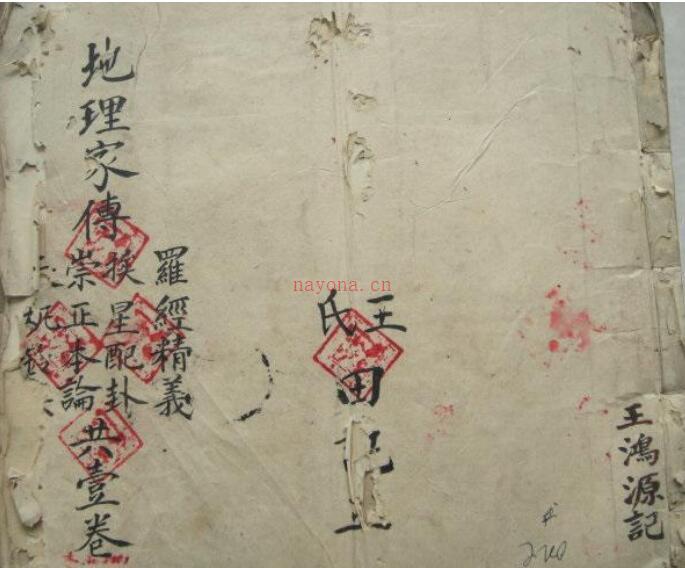 王鴻源記
王氏
田記
羅經精義
地理家傳
挨星配卦
崇正本論
共壹卷
nayona.cn